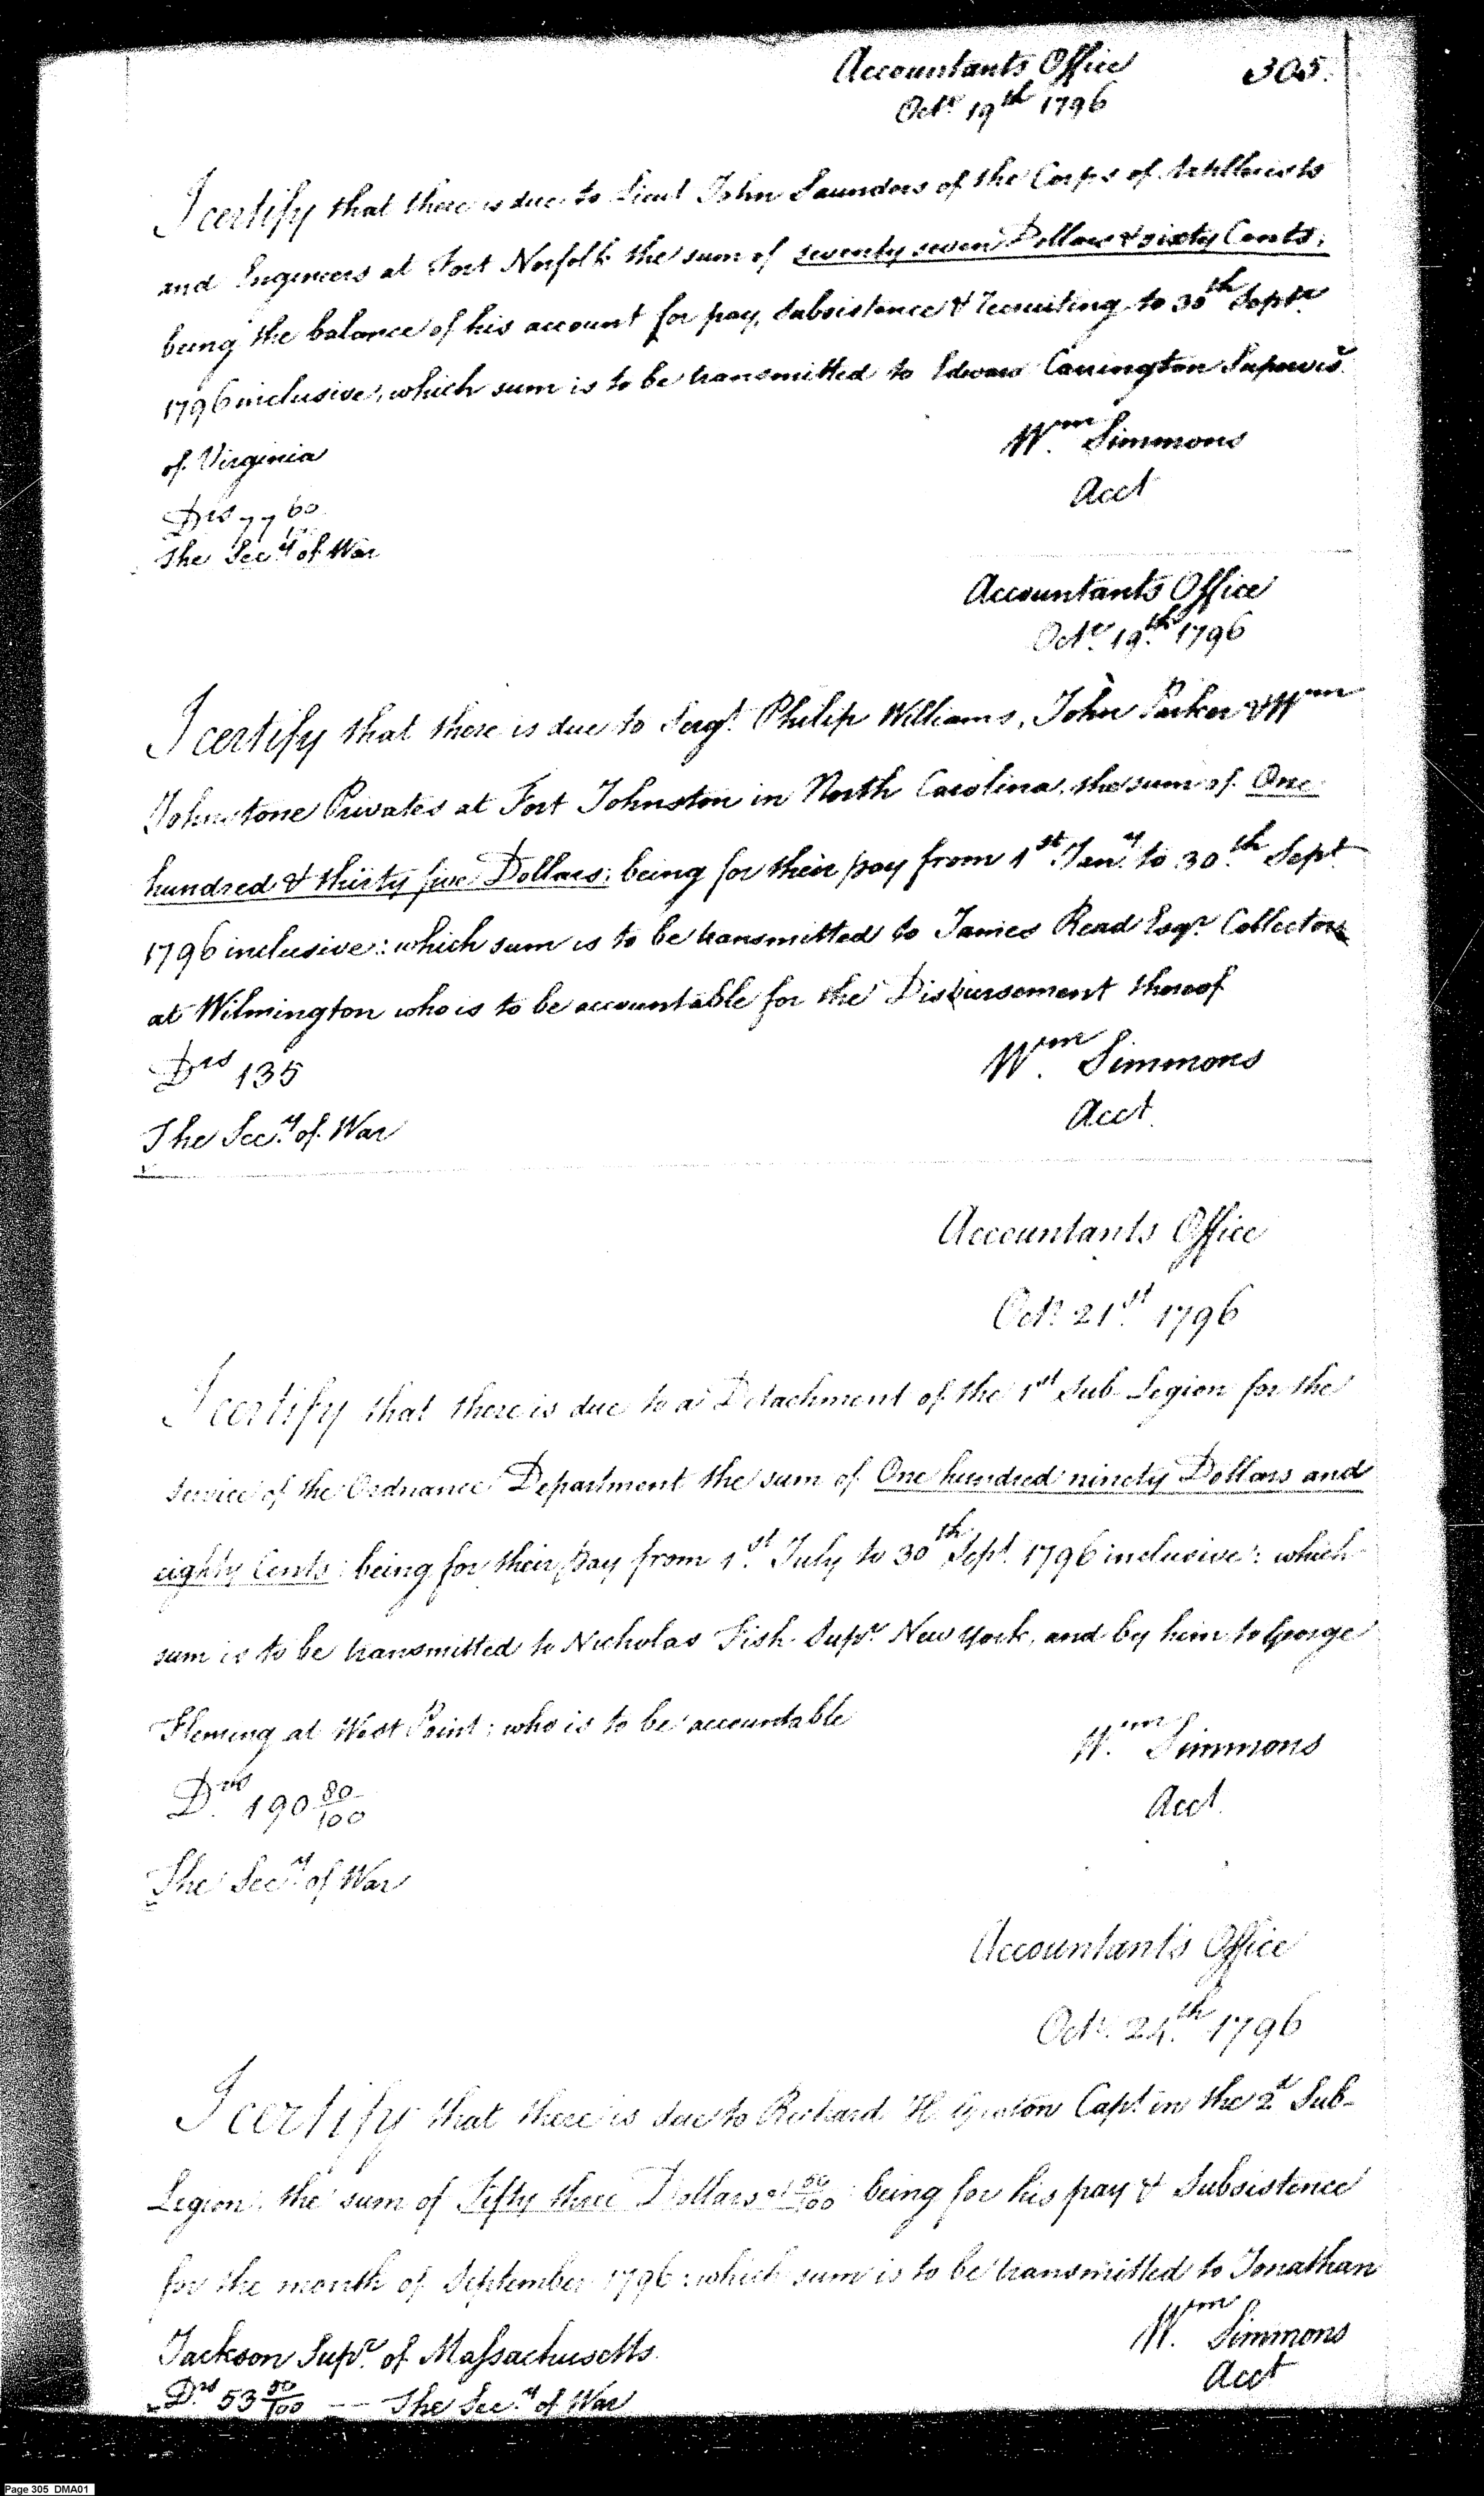 Accountants Office 305.
Octr 19th 1796
I certify that there is due to Lieut John Saunders of the Corps of Artillerists
and Engineers at Fort Norfolk the sum of seventy seven Dollars & sixty Cents;
being the balance of his account for pay, Subsistence & recruiting to 30th Septr
1796 inclusive, which sum is to be transmitted to Edward Carrington Supervisr
of Virginia
Wm Simmons
Acct
Drs 77 60/100
The Secy of War
Accountants Office
Octr 19th 1796
I certify that there is due to Sergt Philip Williams, John Parker & Wm
Johnstone Privates at Fort Johnston in North Carolina, the sum of One
hundred & thirty five Dollars; being for their pay from 1st Jany to 30th Sept
1796 inclusive: which sum is to be transmitted to James Read Esqr Collector
at Wilmington who is to be accountable for the Disbursement thereof
Drs 135
Wm Simmons
Acct.
The Secy of War
Accountants Office
Octr 21st 1796
I certify that there is due to a Detachment of the 1st Sub Legion for the
service of the Ordnance Department the sum of One hundred ninety Dollars and
eighty Cents: being for their pay from 1st July to 30th Sept 1796 inclusive: which
sum is to be transmitted to Nicholas Fish Supr New York, and by him to George
Fleming at West Point; who is to be accountable
Wm Simmons
Acct.
Drs 190 80/100
The Secy of War
Accountants Office
Octr 24th 1796
I certify that there is due to Richard H. Capt in the 2d Sub-
Legion: the sum of Fifty three Dollars 50/100: being for his pay & Subsistence
for the month of September 1796: which sum is to be transmitted to Jonathan
Jackson Supr of Massachusetts.
Wm Simmons
Acct
Drs 53 50/100 -- The Secy of War
Page 305 DMA01